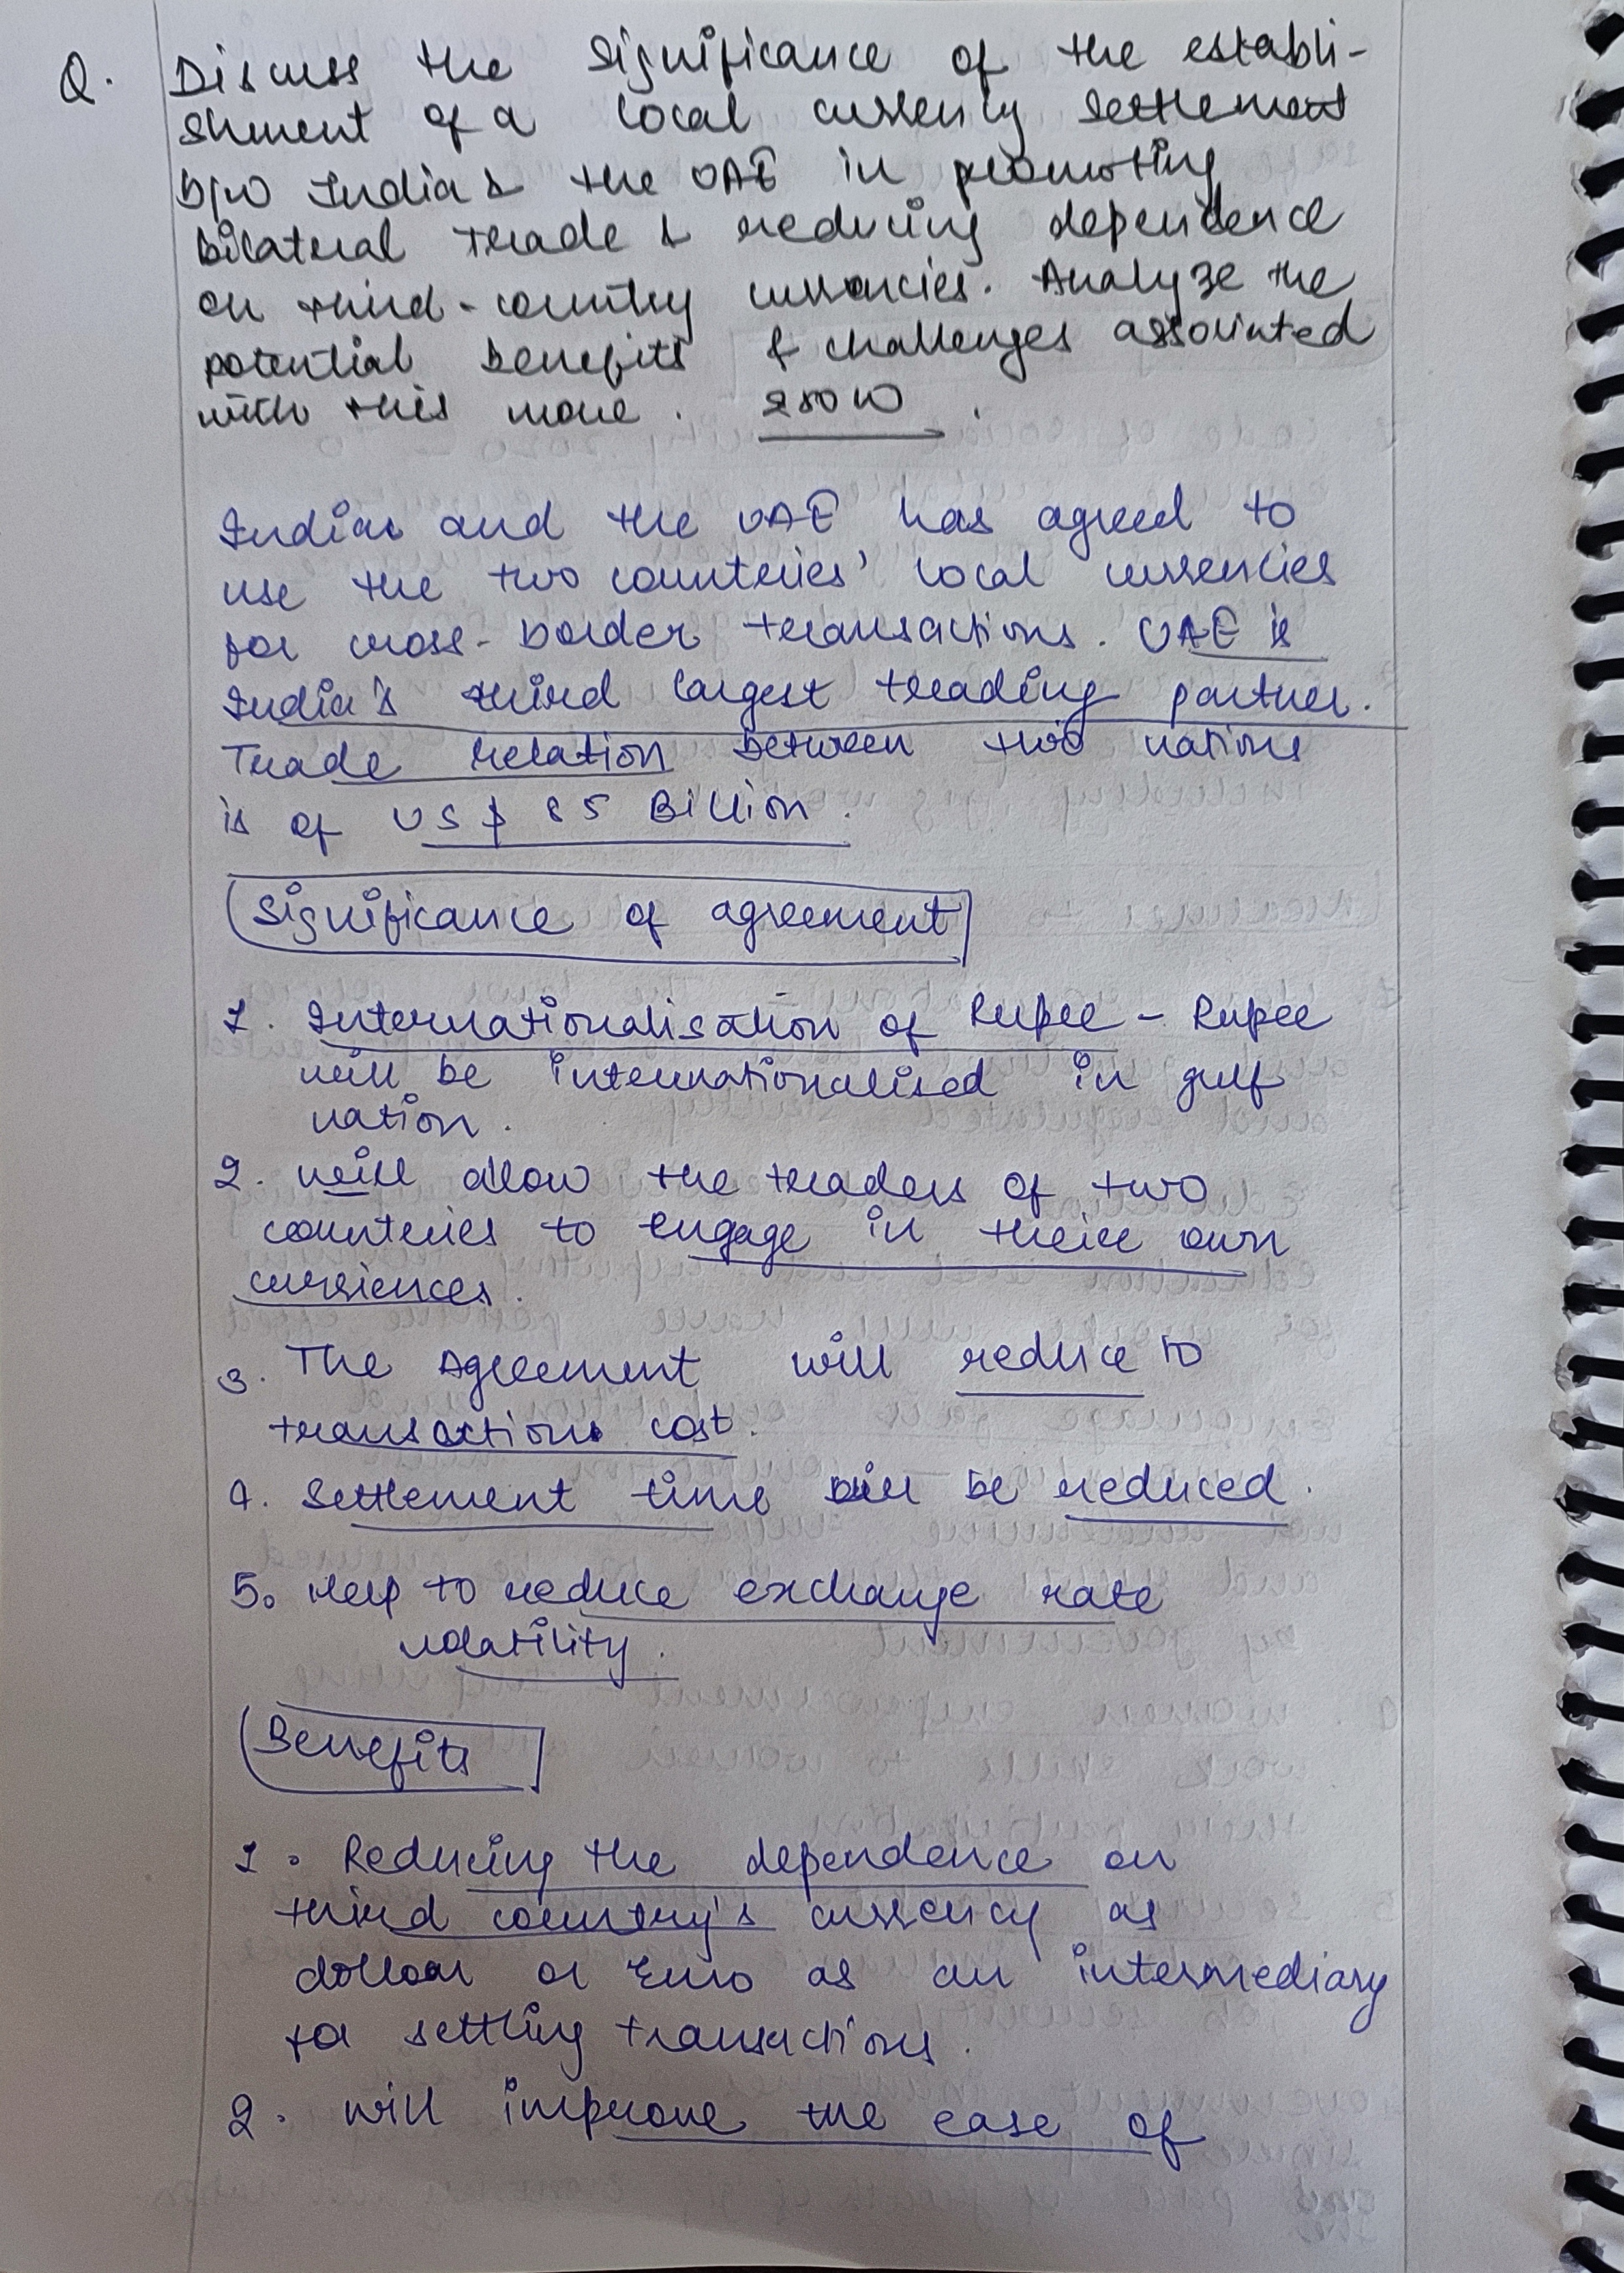 Q. Discuss the significance of the establi-
shment of a local currency settlement
b/w India & the UAE in promoting
bilateral trade & reducing dependence
on third-country currancies. Analyze the
potential benefits & challenges associated
with this move. 250W.
India and the UAE has agreed to
use the two counteries' local currencies
for cross-border transactions. UAE is
India's third largest trading partner.
Trade relation between two nations
is of US $ 85 Billion.
Significance of agreement
1. Internationalisation of Rupee - Rupee
will be internationalised in gulf
nation.
2. will allow the traders of two
counteries to engage in their own
curriences.
3. The Agreement will reduce to
transactions cost.
4. Settlement time will be reduced.
5. Help to reduce exchange rate
volatility.
Benefits
1. Reducing the dependence on
third country's currency as
dollar or Euro as an intermediary
for settling transactions.
2. will improve the ease of